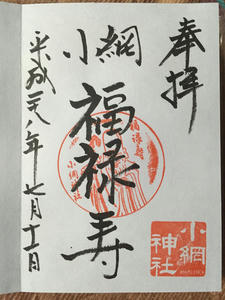 奉拝
小網
福禄寿
平成二八年七月十一日
福禄寿
小網神社
小網
神社